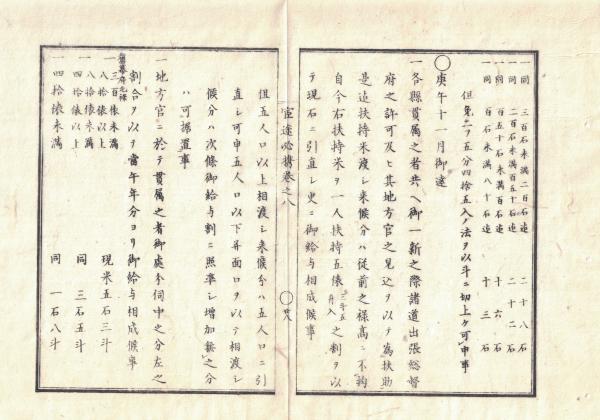 一同 三百石未満二百石迄 二十八石
一同 二百石未満百五十石迄 二十二石
一同 百五十石未満百石迄 十六石
一同 百石未満八十石迄 十三石
但第二ヲ五分四拾五入ノ法ヲ以斗ニ切上ケ可申事
〇庚午十一月御達
一各縣貫属之者共ヘ御一新之際諸道出張総督
府之許可及ヒ其地方官之見込ヲ以テ為扶助
是迠扶持米渡シ来候分ハ従前之禄高ニ不拘
自今右扶持米ヲ一人扶持五俵三斗五升入之割ヲ以
テ現石ニ引直シ更ニ御給与相成候事
宦途必携巻之八
〇廿八
但五人口以上相渡シ来候分ハ五人口ニ引
直シ可申五人口以下并面口ヲ以テ相渡シ
候分ハ次條御給与割ニ照準シ増加スルノ分
ハ可据置事
一地方官ニ於テ貫属之者御処分伺中之分左之
割合ヲ以テ當午年分ヨリ御給与相成候事
旧幕府元禄
一三百俵未満
八拾俵以上 現米五石三斗
一八拾俵未満
四拾俵以上 同 三石五斗
一四拾俵未満 同 一石八斗